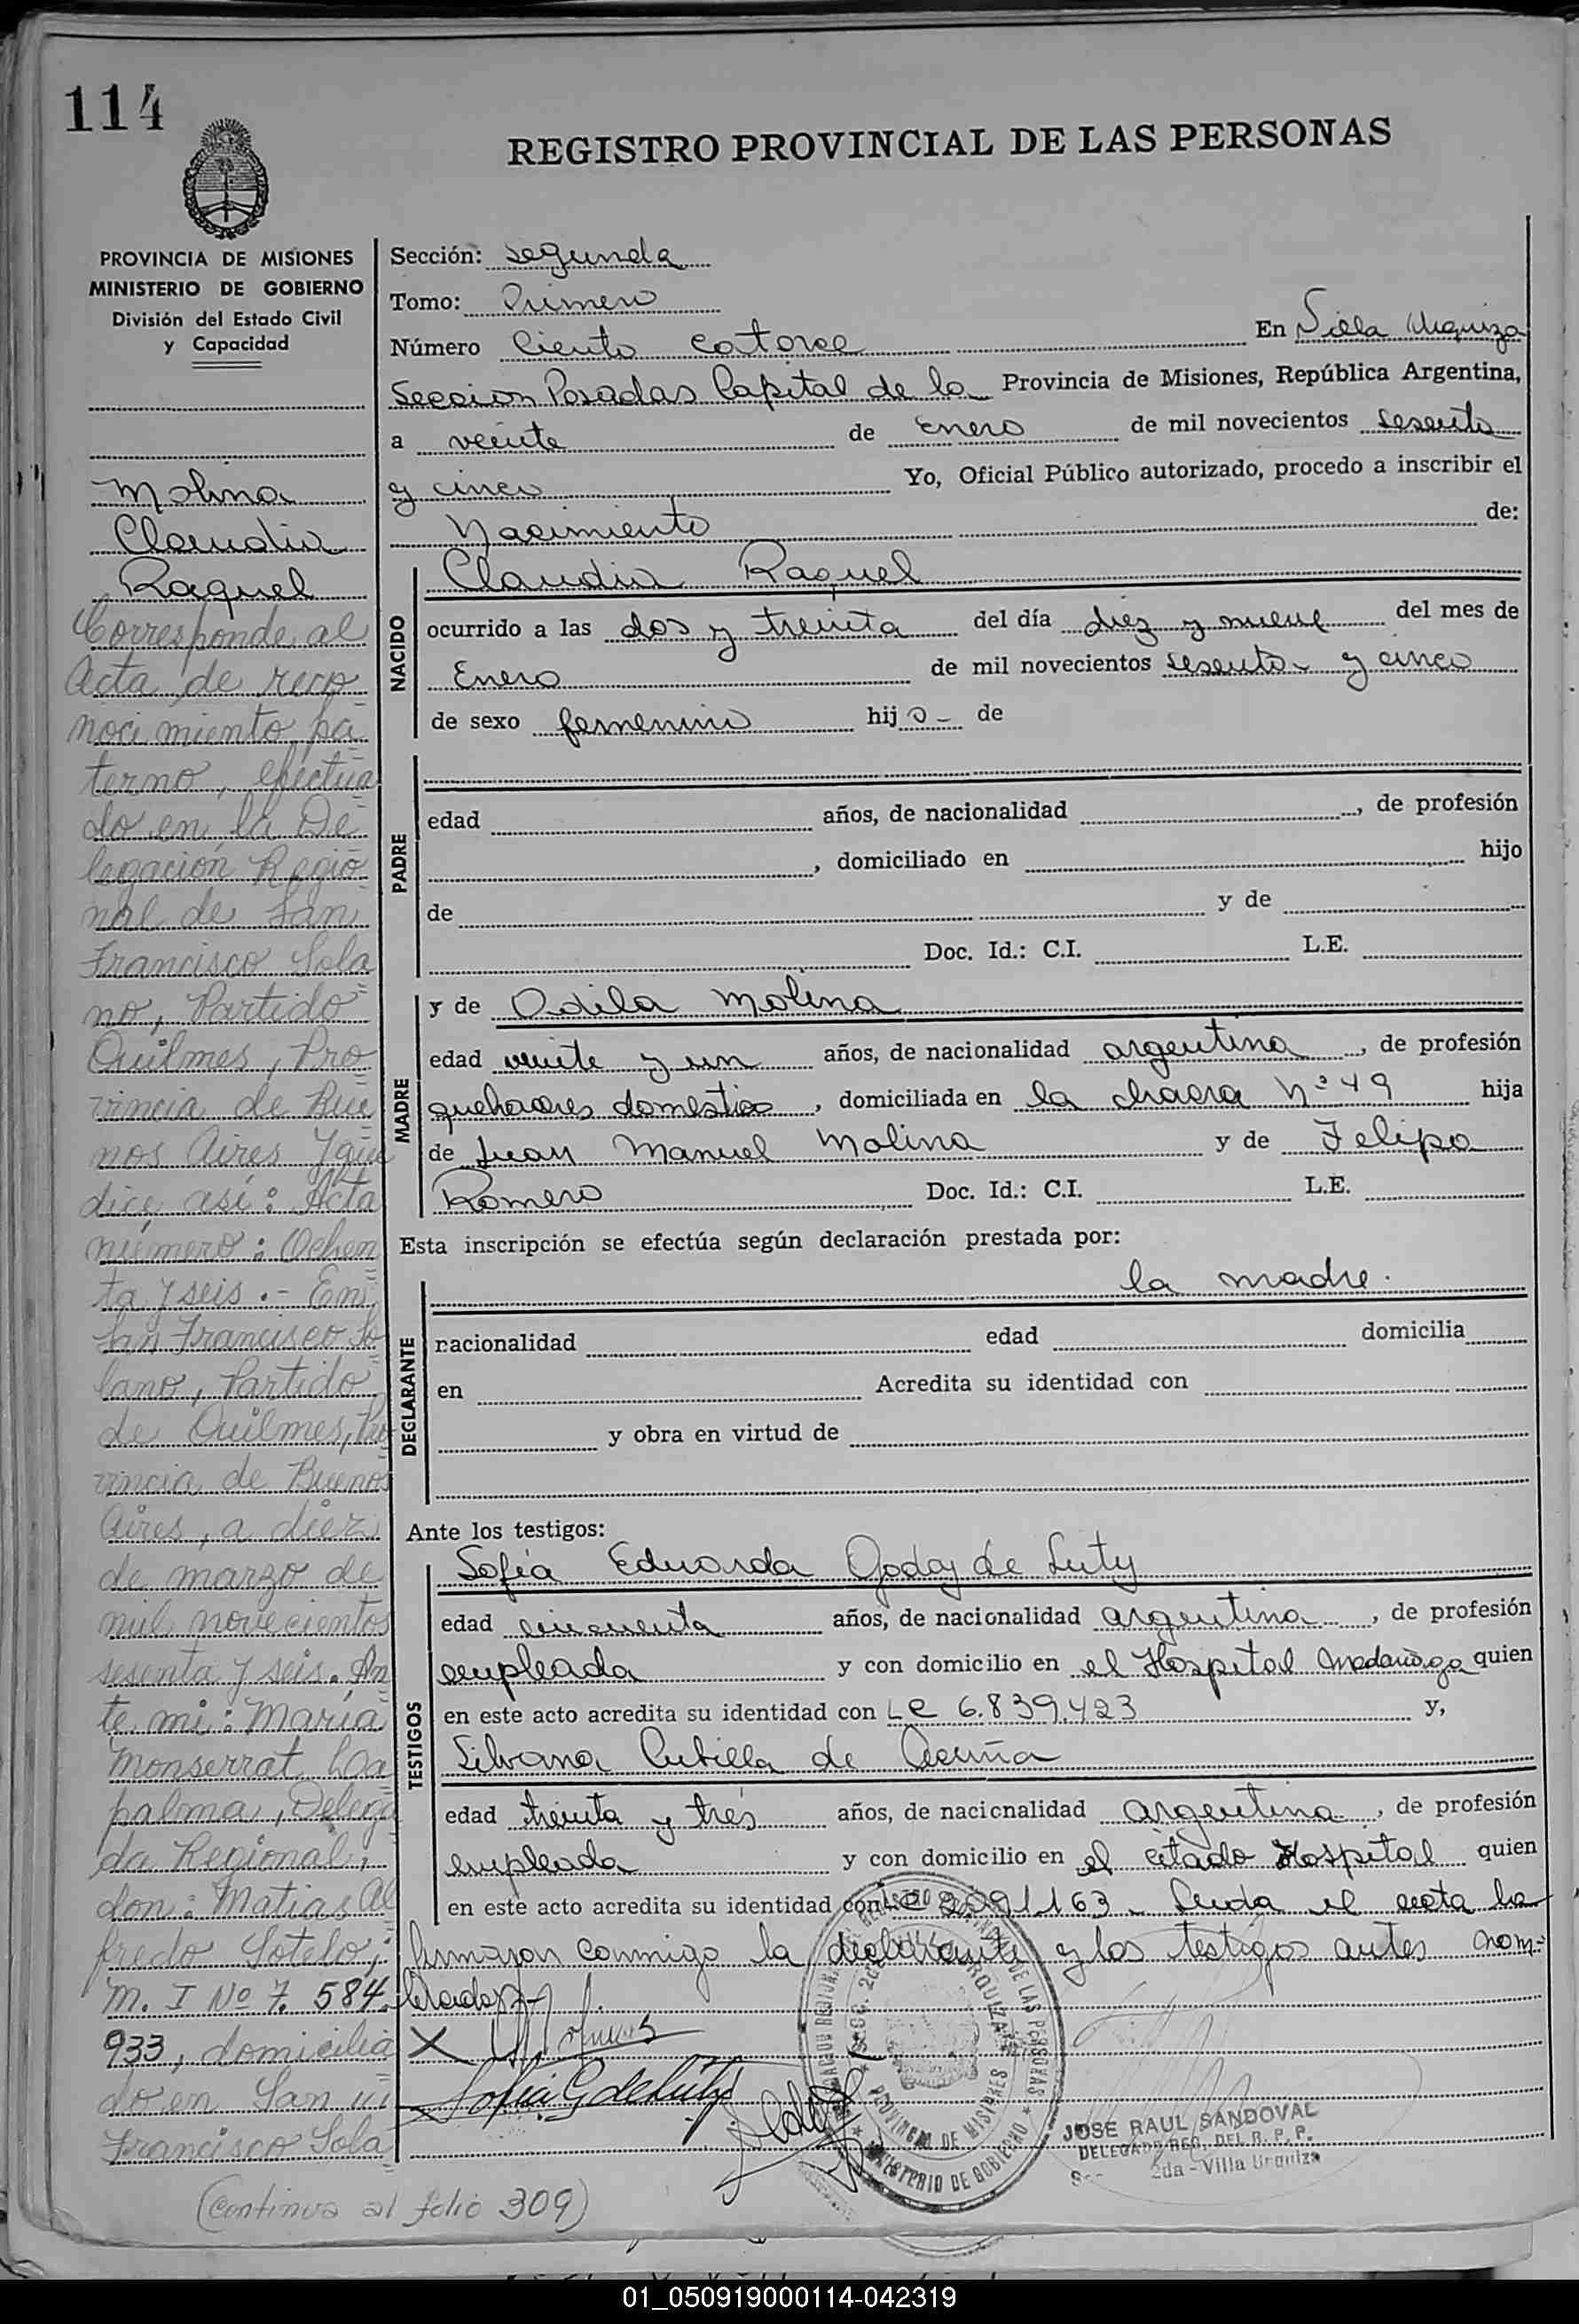 114
REGISTRO PROVINCIAL DE LAS PERSONAS
PROVINCIA DE MISIONES
MINISTERIO DE GOBIERNO
División del Estado Civil
y Capacidad
Molina
Claudia
Raquel
Corresponde al
Acta de reco
nocimiento pa
terno, efectua
do en la De
legación Regio
nal de San
Francisco Sola
no, Partido
Quilmes, Pro
vincia de Bue
nos Aires y que
dice así: Acta
número: Ochen
ta y seis.- En
San Francisco So
lano, Partido
de Quilmes, Pro
vincia de Buenos
Aires, a diez
de marzo de
mil novecientos
sesenta y seis. An
te mi: María
Monserrat La
palma, Delega
da Regional,
don: Matias Al
fredo Sotelo;
M. I Nº 7. 584.
933, domicilia
do en San
Francisco Sola
(Continua al folio 309)
Sección: segunda
Tomo: Primero
Número Ciento catorce En Villa Urquiza
Seccion Posadas Capital de la Provincia de Misiones, República Argentina,
a veinte de Enero de mil novecientos sesenta
y cinco Yo, Oficial Público autorizado, procedo a inscribir el
Nacimiento de:
NACIDO
Claudia Raquel
ocurrido a las dos y treinta del día diez y nueve del mes de
Enero de mil novecientos sesenta y cinco
de sexo femenino hija- de
PADRE
edad años, de nacionalidad , de profesión
, domiciliado en hijo
de y de
Doc. Id.: C.I. L.E.
MADRE
y de Odila Molina
edad veinte y un años, de nacionalidad argentina, de profesión
quehaceres domestico, domiciliada en la chacra Nº 49 hija
de Juan Manuel Molina y de Felipa
Romero Doc. Id.: C.I. L.E.
Esta inscripción se efectúa según declaración prestada por:
DECLARANTE
la madre.
nacionalidad edad domicilia
en Acredita su identidad con
y obra en virtud de
Ante los testigos:
TESTIGOS
Sofía Eduarda Godoy de Luty
edad cincuenta años, de nacionalidad argentina, de profesión
empleada y con domicilio en el Hospital Madariaga quien
en este acto acredita su identidad con LC 6.839.423 y,
Silvana Cubilla de Acuña
edad treinta y tres años, de nacionalidad argentina, de profesión
empleada y con domicilio en el citado Hospital quien
en este acto acredita su identidad con LC Leida el acta la
firmaron conmigo la declarante y los testigos antes nom-
brados
X
Sofia G de Luty
PROVINCIA DE MISIONES
MINISTERIO DE GOBIERNO
JOSE RAUL SANDOVAL
DELEGADO REG. DEL R. P. P.
2da - Villa Urquiza
01_050919000114-042319